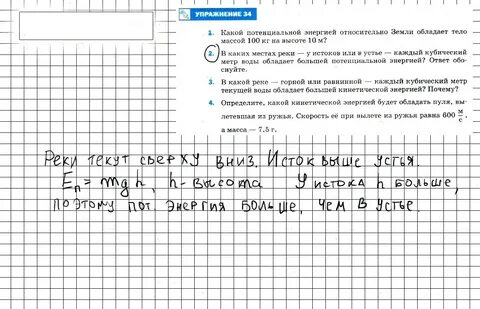 УПРАЖНЕНИЕ 34
1. Какой потенциальной энергией относительно Земли обладает тело
массой 100 кг на высоте 10 м?
2. В каких местах реки — у истоков или в устье — каждый кубический
метр воды обладает большей потенциальной энергией? Ответ обо-
снуйте.
3. В какой реке — горной или равнинной — каждый кубический метр
текущей воды обладает большей кинетической энергией? Почему?
4. Определите, какой кинетической энергией будет обладать пуля, вы-
летевшая из ружья. Скорость её при вылете из ружья равна 600 м/с,
а масса — 7,5 г.
Реки текут сверху вниз. Исток выше устья
Eп = mgh, h - высота У истока h больше,
поэтому пот. энергия больше, чем в устье.